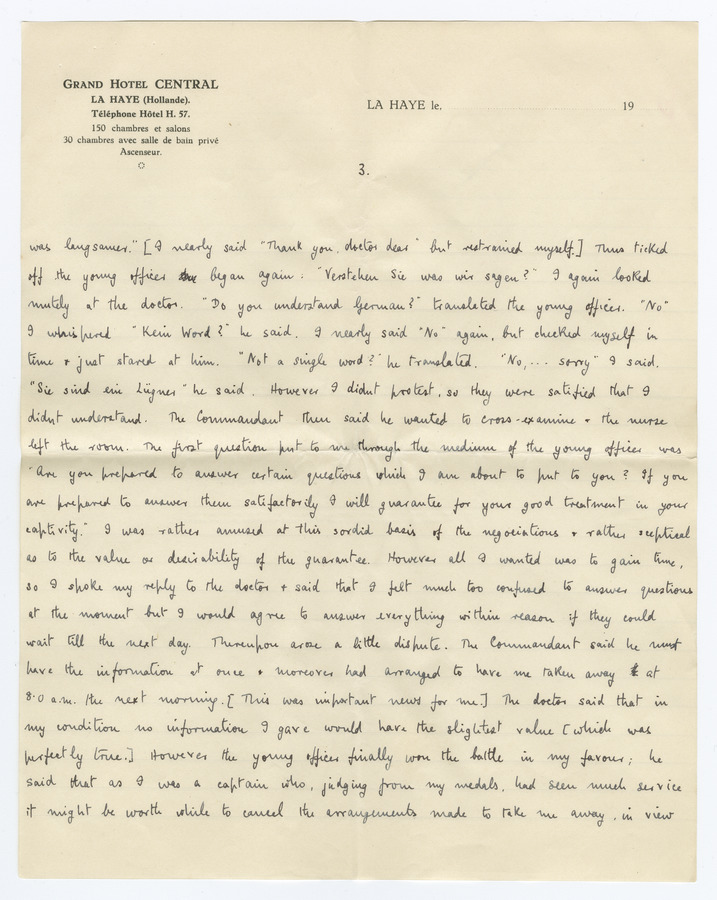 GRAND HOTEL CENTRAL
LA HAYE (Hollande).
Téléphone Hôtel H. 57.
150 chambres et salons
30 chambres avec salle de bain privé
Ascenseur.
LA HAYE le, 19
3.
was langsamer." [I nearly said "Thank you, doctor dear" but restrained myself.] Thus ticked
off the young officer began again: "Verstehen Sie was wir sagen?" I again looked
mutely at the doctor. "Do you understand German?" translated the young officer. "No"
I whispered "Kein Word?" he said. I nearly said "No" again, but checked myself in
time & just stared at him. "Not a single word?" he translated. "No, ... sorry" I said.
"Sie sind ein Lügner" he said. However I didnt protest, so they were satified that I
didnt understand. The Commandant then said he wanted to cross-examine & the nurse
left the room. The first question put to me through the medium of the young officer was
"Are you prepared to answer certain questions which I am about to put to you? If you
are prepared to answer them satisfactorily I will guarantee for your good treatment in your
captivity." I was rather amused at this sordid basis of the negociations & rather sceptical
as to the value or desirability of the guarantee. However all I wanted was to gain time,
so I spoke my reply to the doctor & said that I felt much too confused to answer questions
at the moment but I would agree to answer everything within reason if they could
wait till the next day. Thereupon arose a little dispute. The Commandant said he must
have the information at once & moreover had arranged to have me taken away at
8.0 a.m. the next morning. [This was important news for me.] The doctor said that in
my condition no information I gave would have the slightest value [which was
perfectly true.] However the young officer finally won the battle in my favour; he
said that as I was a captain who, judging from my medals, had seen much service
it might be worth while to cancel the arrangements made to take me away, in view